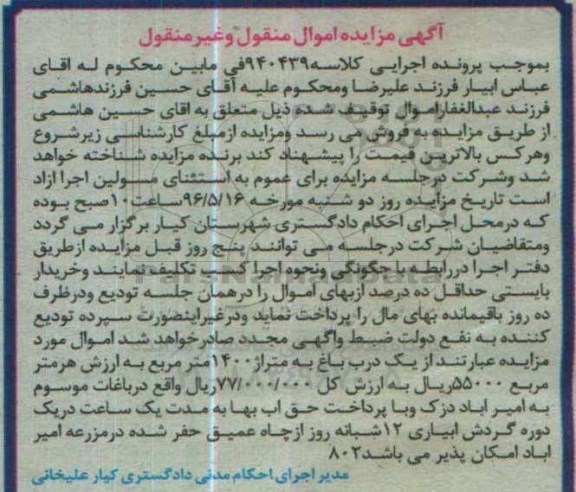 آگهی مزایده اموال منقول وغیرمنقول
بموجب پرونده اجرایی کلاسه۹۴۰۴۳۹فی مابین محکوم له اقای
عباس ابیار فرزند علیرضا ومحکوم علیه آقای حسین فرزندهاشمی
فرزند عبدالغفاراموال توقیف شده ذیل متعلق به اقای حسین هاشمی
از طریق مزایده به فروش می رسد ومزایده ازمبلغ کارشناسی زیرشروع
وهرکس بالاترین قیمت را پیشنهاد کند برنده مزایده شناخته خواهد
شد وشرکت درجلسه مزایده برای عموم به استثنای مسولین اجرا ازاد
است تاریخ مزایده روز دو شنبه مورخه ۹۶/۵/۱۶ساعت۱۰صبح بوده
که درمحل اجرای احکام دادگستری شهرستان کیار برگزار می گردد
ومتقاضیان شرکت درجلسه می توانند پنج روز قبل مزایده ازطریق
دفتر اجرا دررابطه با چگونگی ونحوه اجرا کسب تکلیف نمایند وخریدار
بایستی حداقل ده درصد ازبهای اموال را درهمان جلسه تودیع ودرظرف
ده روز باقیمانده بهای مال را پرداخت نماید ودرغیراینصورت سپرده تودیع
کننده به نفع دولت ضبط واگهی مجدد صادرخواهد شد اموال مورد
مزایده عبارتند از یک درب باغ به متراژ۱۴۰۰متر مربع به ارزش هرمتر
مربع ۵۵۰۰۰ریال به ارزش کل ۷۷/۰۰۰/۰۰۰ریال واقع درباغات موسوم
به امیر اباد دزک وبا پرداخت حق اب بها به مدت یک ساعت دریک
دوره گردش ابیاری ۱۲شبانه روز ازچاه عمیق حفر شده درمزرعه امیر
اباد امکان پذیر می باشد۸۰۲
مدیر اجرای احکام مدنی دادگستری کیار علیخانی